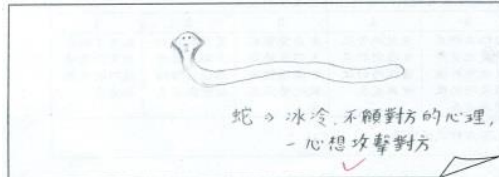 蛇→冰冷.不願對方的心理,
一心想攻擊對方